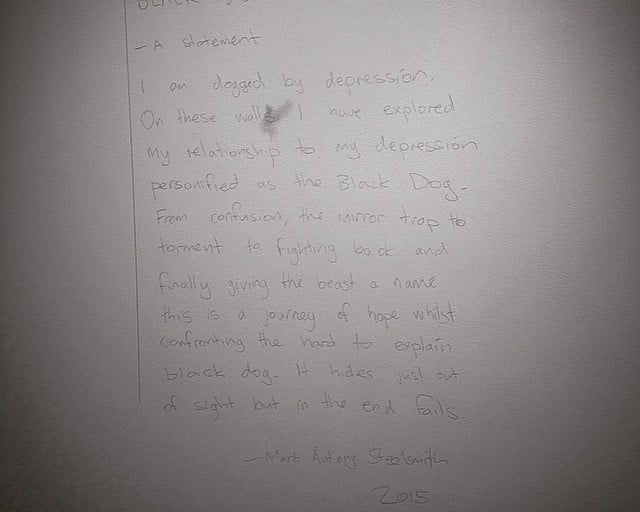 BLACK
- A statement
I am dogged by depression.
On these walls I have explored
my relationship to my depression
personified as the Black Dog.
From confusion, the mirror trap to
torment to fighting back and
finally giving the beast a name
this is a journey of hope whilst
confronting the hard to explain
black dog. It hides just out
of sight but in the end fails.
- Mark Antony Steelsmith
2015